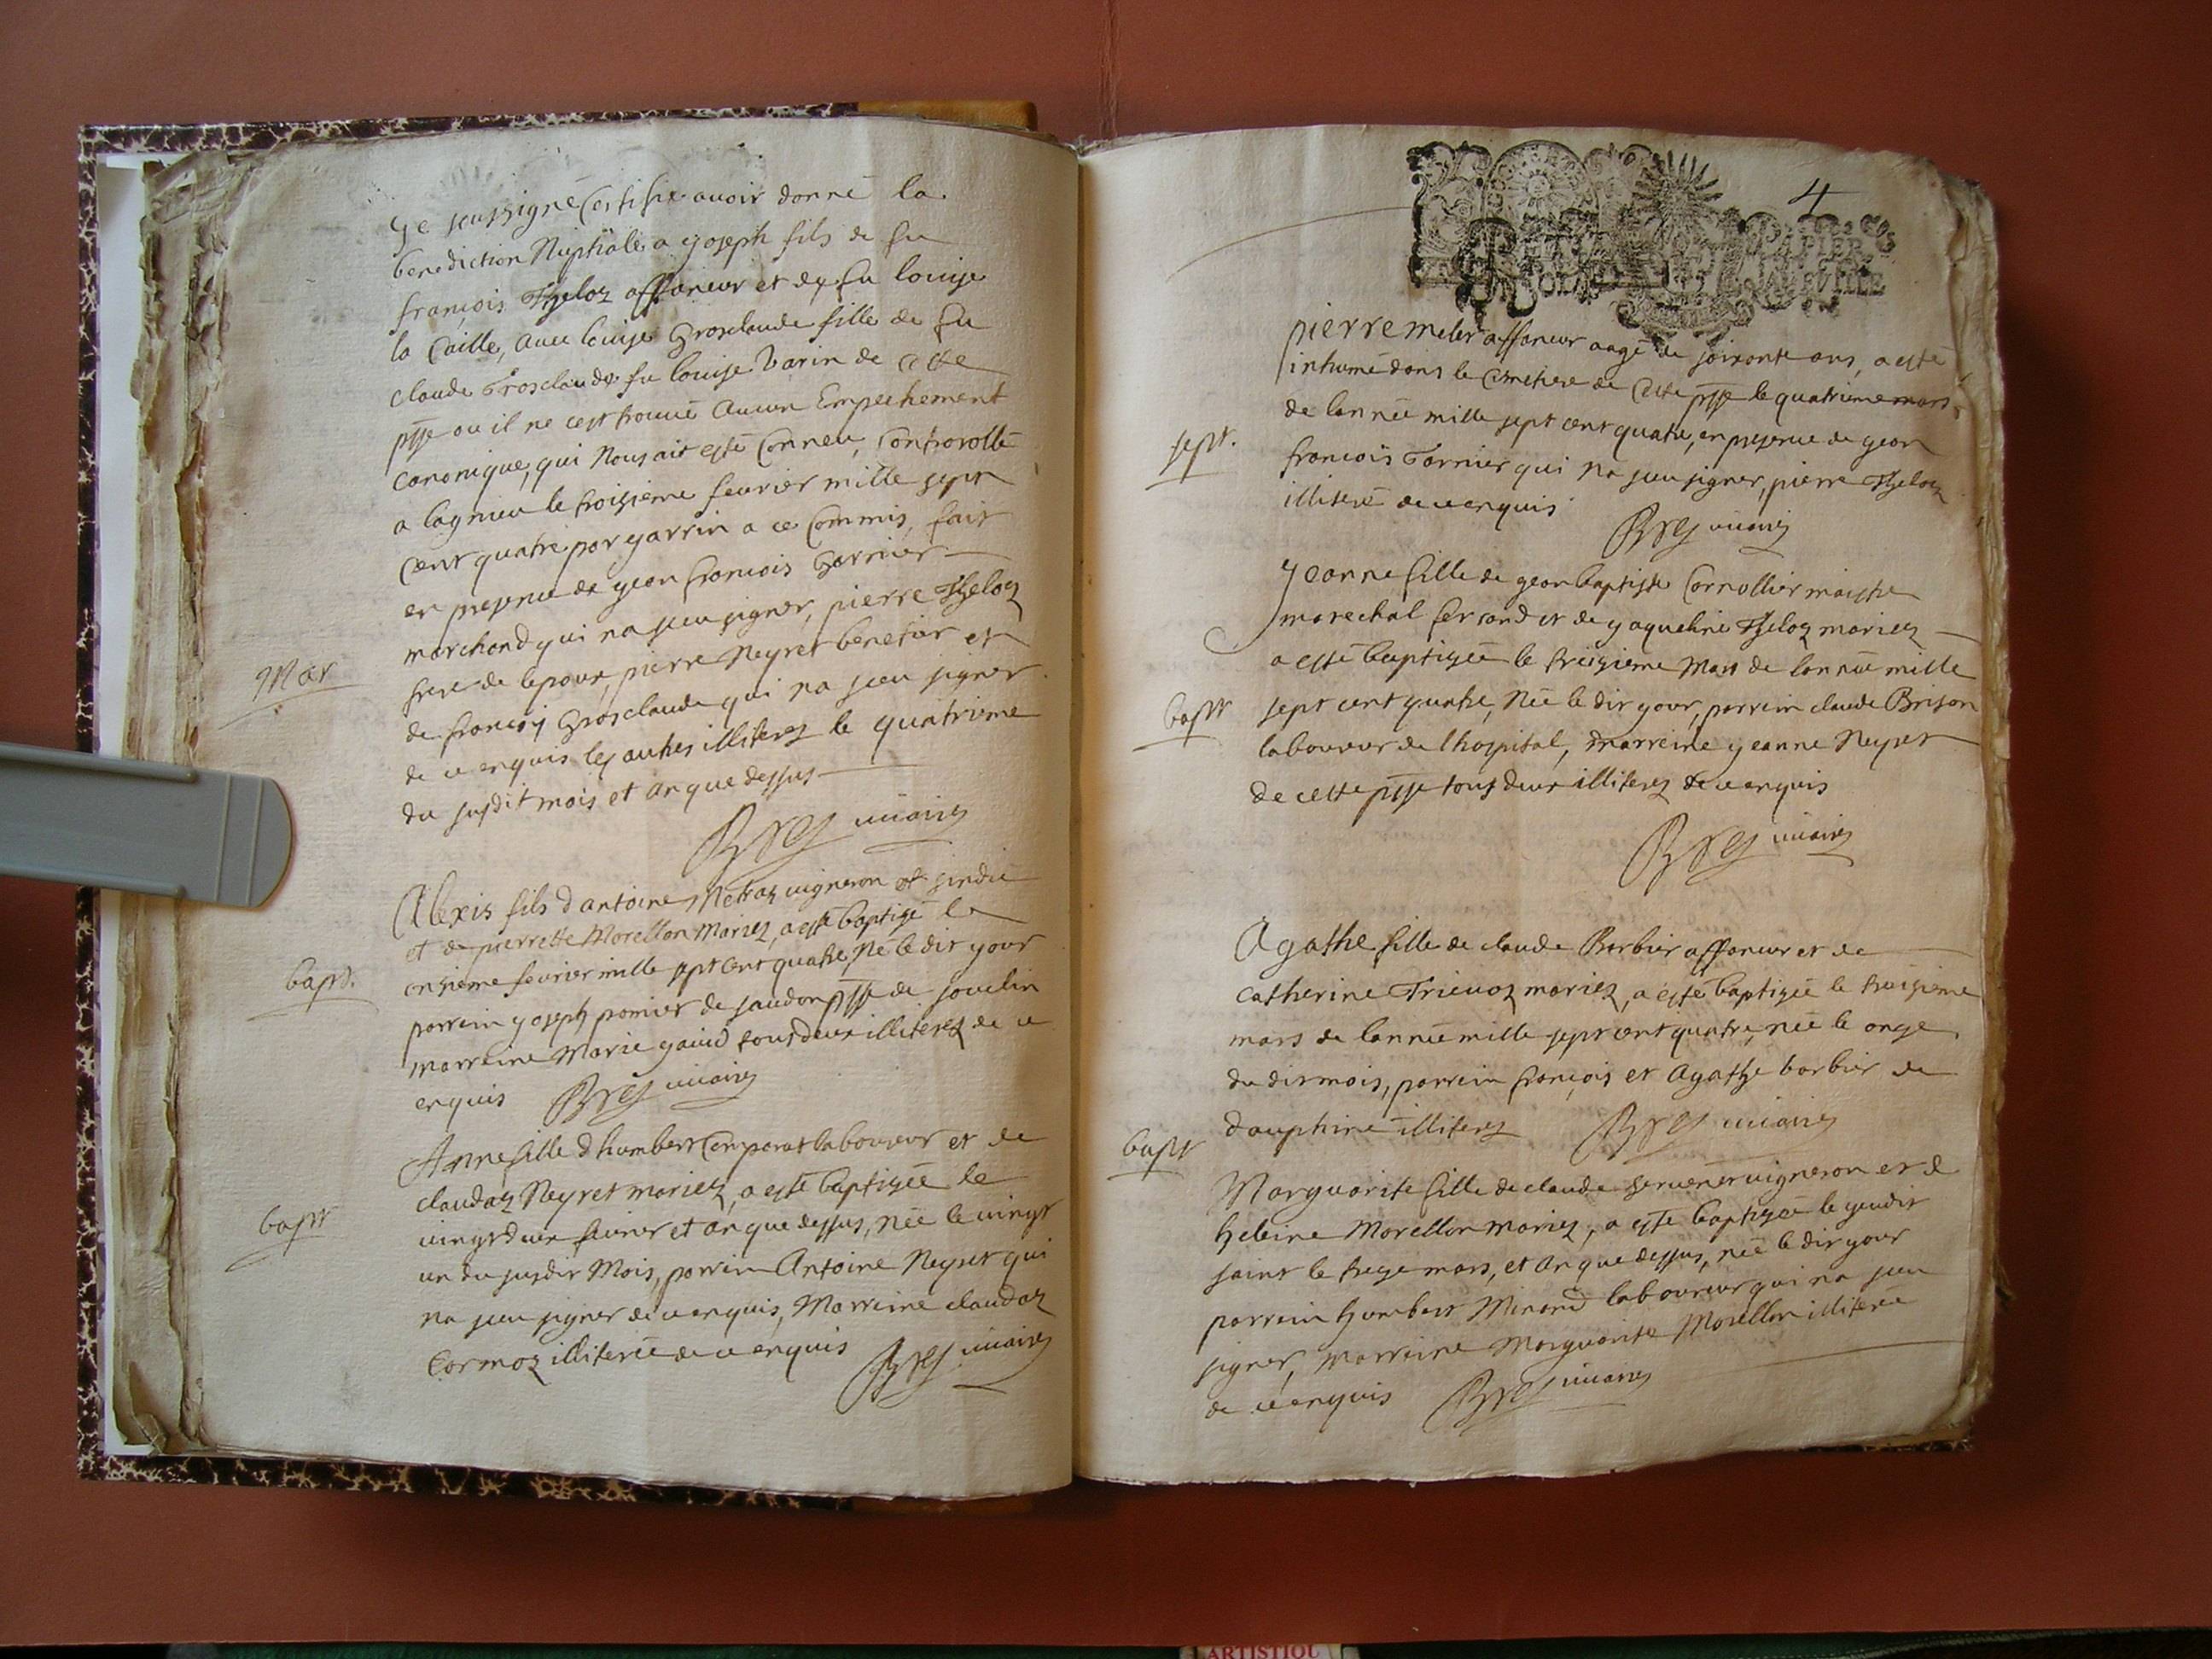 Je soussigné Certifie avoir donné la
benediction Nuptiale a yoseph fils de fu
françois Theloz affaneur et de fu louise
la Caille, avec louise Grosclaude fille de fu
claude Grosclaude fu louise Varin de cette
psse ou il ne cest trouvé Aucun Empechement
canonique, qui nous ait esté Conneu, Controrollé
a lagnieu le troisieme feurier mille sept
Cent quatre par yarrin a ce Commis, fait
en presence de gean francois Garnier
marchand qui na sceu signer, pierre Theloz
frere de lepoux, pierre Neyret benetier et
Mar
de françois Grosclaude qui na sceu signer
de ce enquis les autres illiterez le quatrieme
du susdit mois et an que dessus
Bres vicaire
Alexis fils d antoine Metraz vigneron et sindic
et de pierrette Morellon Mariez, a esté baptisé le
onzieme feurier mille sept Cent quatre Né le dit your
bapt.
parrein yoseph pomier de saudon psse de souclin
marreine Marie gauid tous deux illiterez de ce
enquis Bres vicaire
Anne fille d humbert Comparat laboureur et de
claudaz Neyret mariez, a esté baptisée le
vingt deux feurier et an que dessus, née le vingt
bapt
un du susdit Mois, parrein Antoine Neyret qui
na sceu signer de ce enquis, Marreine claudaz
Cormoz illiterée de ce enquis Bres vicaire
4
pierre meler affaneur aagé de soixante ans, a esté
inhumé dans le Cimetiere de Cette psse le quatrieme mars
de lannée mille sept cent quatre, en presence de gean
sept.
francois Garnier qui na sceu signer, pierre Theloz
illiteré de ce enquis
Bres vicaire
Jeanne fille de gean baptiste Cornollier maistre
marechal ferrand et de yaqueline Theloz mariez
a esté baptisée le treizieme Mars de lannée mille
bapt
sept cent quatre, Née le dit your, parrein claude Brison
laboureur de lhospital, marreine yeanne Neyret
de cette psse tous deux illiterez de ce enquis
Bres vicaire
Agathe fille de claude Barbier affaneur et de
catherine Trieuoz mariez, a esté baptisée le troizieme
mars de lannée mille sept cent quatre, née le onze
du dit mois, parrein françois et Agathe barbier de
dauphiné illiterez Bres vicaire
bapt
Marguarite fille de claude seruener vigneron et d
heleine Morellon Mariez, a esté baptisée le yeudit
saint le treze mars, et an que dessus, née le dit your
parrein humbert Minand laboureur qui na sceu
signer, Marreine Marguarite Morellon illiterée
de ce enquis Bres vicaire
ARTISTIQU